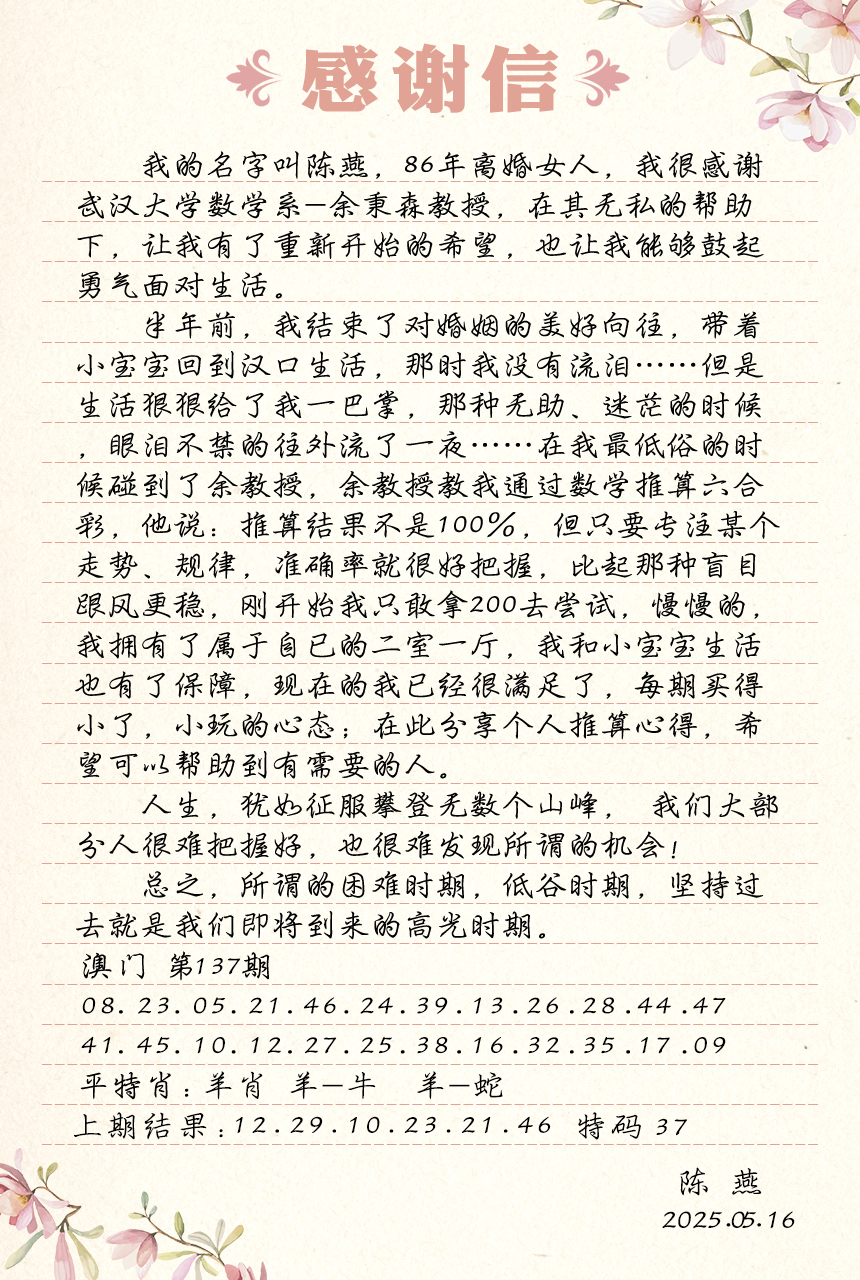 感谢信
我的名字叫陈燕，86年离婚女人，我很感谢
武汉大学数学系—余秉森教授，在其无私的帮助
下，让我有了重新开始的希望，也让我能够鼓起
勇气面对生活。
半年前，我结束了对婚姻的美好向往，带着
小宝宝回到汉口生活，那时我没有流泪……但是
生活狠狠给了我一巴掌，那种无助、迷茫的时候
，眼泪不禁的往外流了一夜……在我最低俗的时
候碰到了余教授，余教授教我通过数学推算六合
彩，他说：推算结果不是100%，但只要专注某个
走势、规律，准确率就很好把握，比起那种盲目
跟风更稳，刚开始我只敢拿200去尝试，慢慢的，
我拥有了属于自已的二室一厅，我和小宝宝生活
也有了保障，现在的我已经很满足了，每期买得
小了，小玩的心态；在此分享个人推算心得，希
望可以帮助到有需要的人。
人生，犹如征服攀登无数个山峰， 我们大部
分人很难把握好，也很难发现所谓的机会！
总之，所谓的困难时期，低谷时期，坚持过
去就是我们即将到来的高光时期。
澳门 第137期
08.23.05.21.46.24.39.13.26.28.44.47
41.45.10.12.27.25.38.16.32.35.17.09
平特肖：羊肖 羊—牛 羊—蛇
上期结果：12.29.10.23.21.46 特码 37
陈 燕
2025.05.16